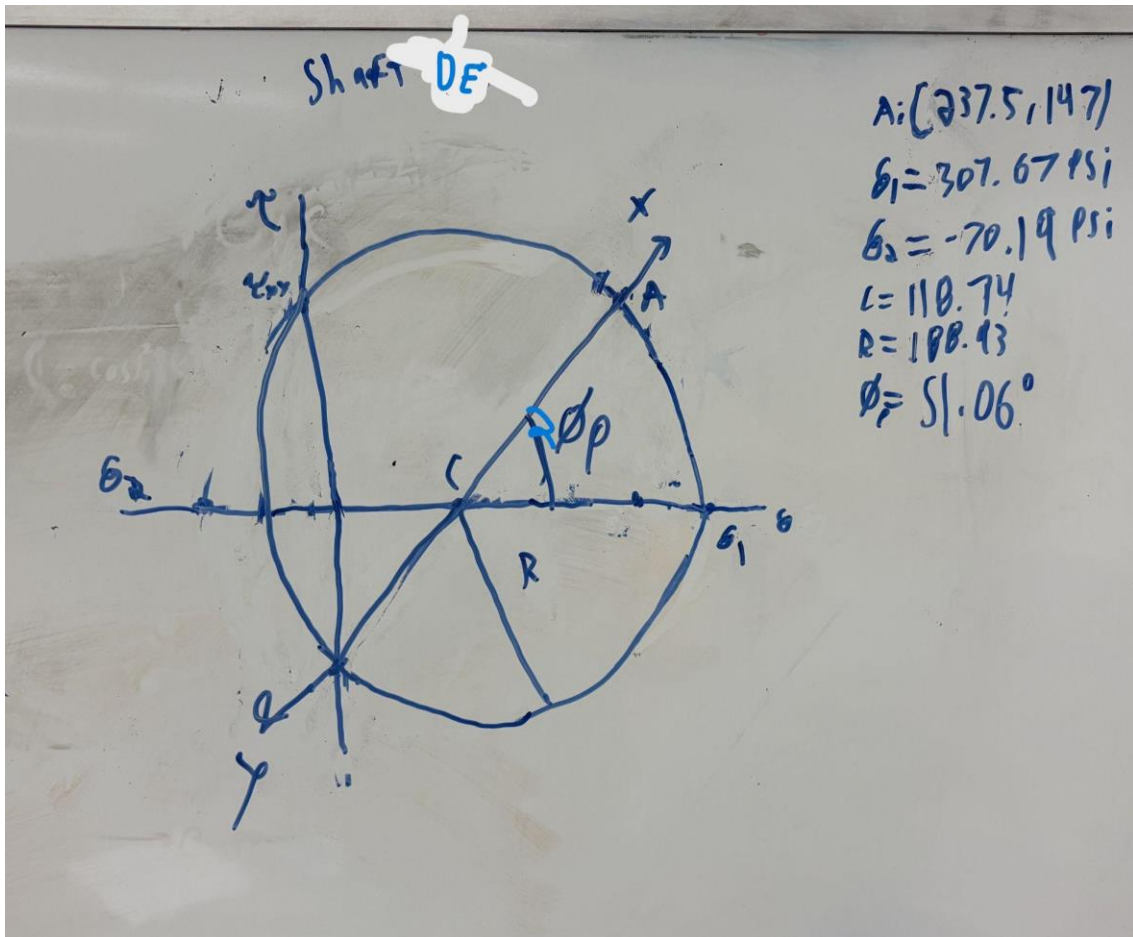 Shaft DE
A:(237.5, 147)
σ1 = 307.67 PSi
σ2 = -70.19 PSi
C = 118.74
R = 188.93
ϕp = 51.06°
τ
X
τxy
A
ϕp
C
σ2
σ
σ1
R
Y